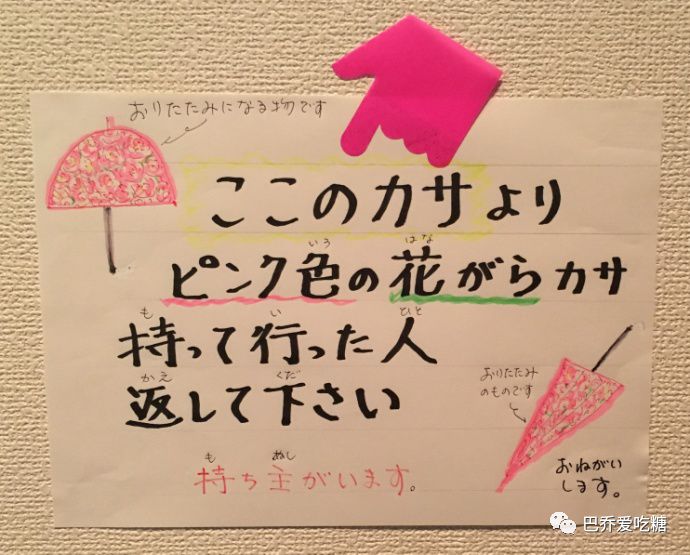 おりたたみになる物です
ここのカサより
ピンク色の花がらカサ
いろ
はな
持って行った人
も
い
ひと
返して下さい
かえ
くだ
おりたたみ
のものです
持ち主がいます。
も
ぬし
おねがい
します。
巴乔爱吃糖